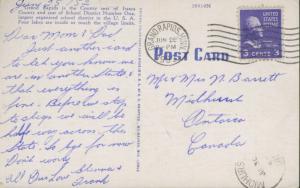 June 25/52
Grand Rapids is the County seat of Itasca
County and seat of School District Number One,
largest organized school district in the U. S. A.
Four lakes are inside the village limits.
GRAND RAPIDS, MINN.
JUN 26
PM
POST CARD
3 CENTS 3
Dear Mom & Dad,
Just another card
to let you know we
are in another state &
that everything is
fine. Before we stop
to sleep we will be
well across this
State. So bye for now
Don't worry
All Our Love Glenna &
Frank
Mr & Mrs N. Barrett
Midhurst
Ontario
Canada
MIDHURST